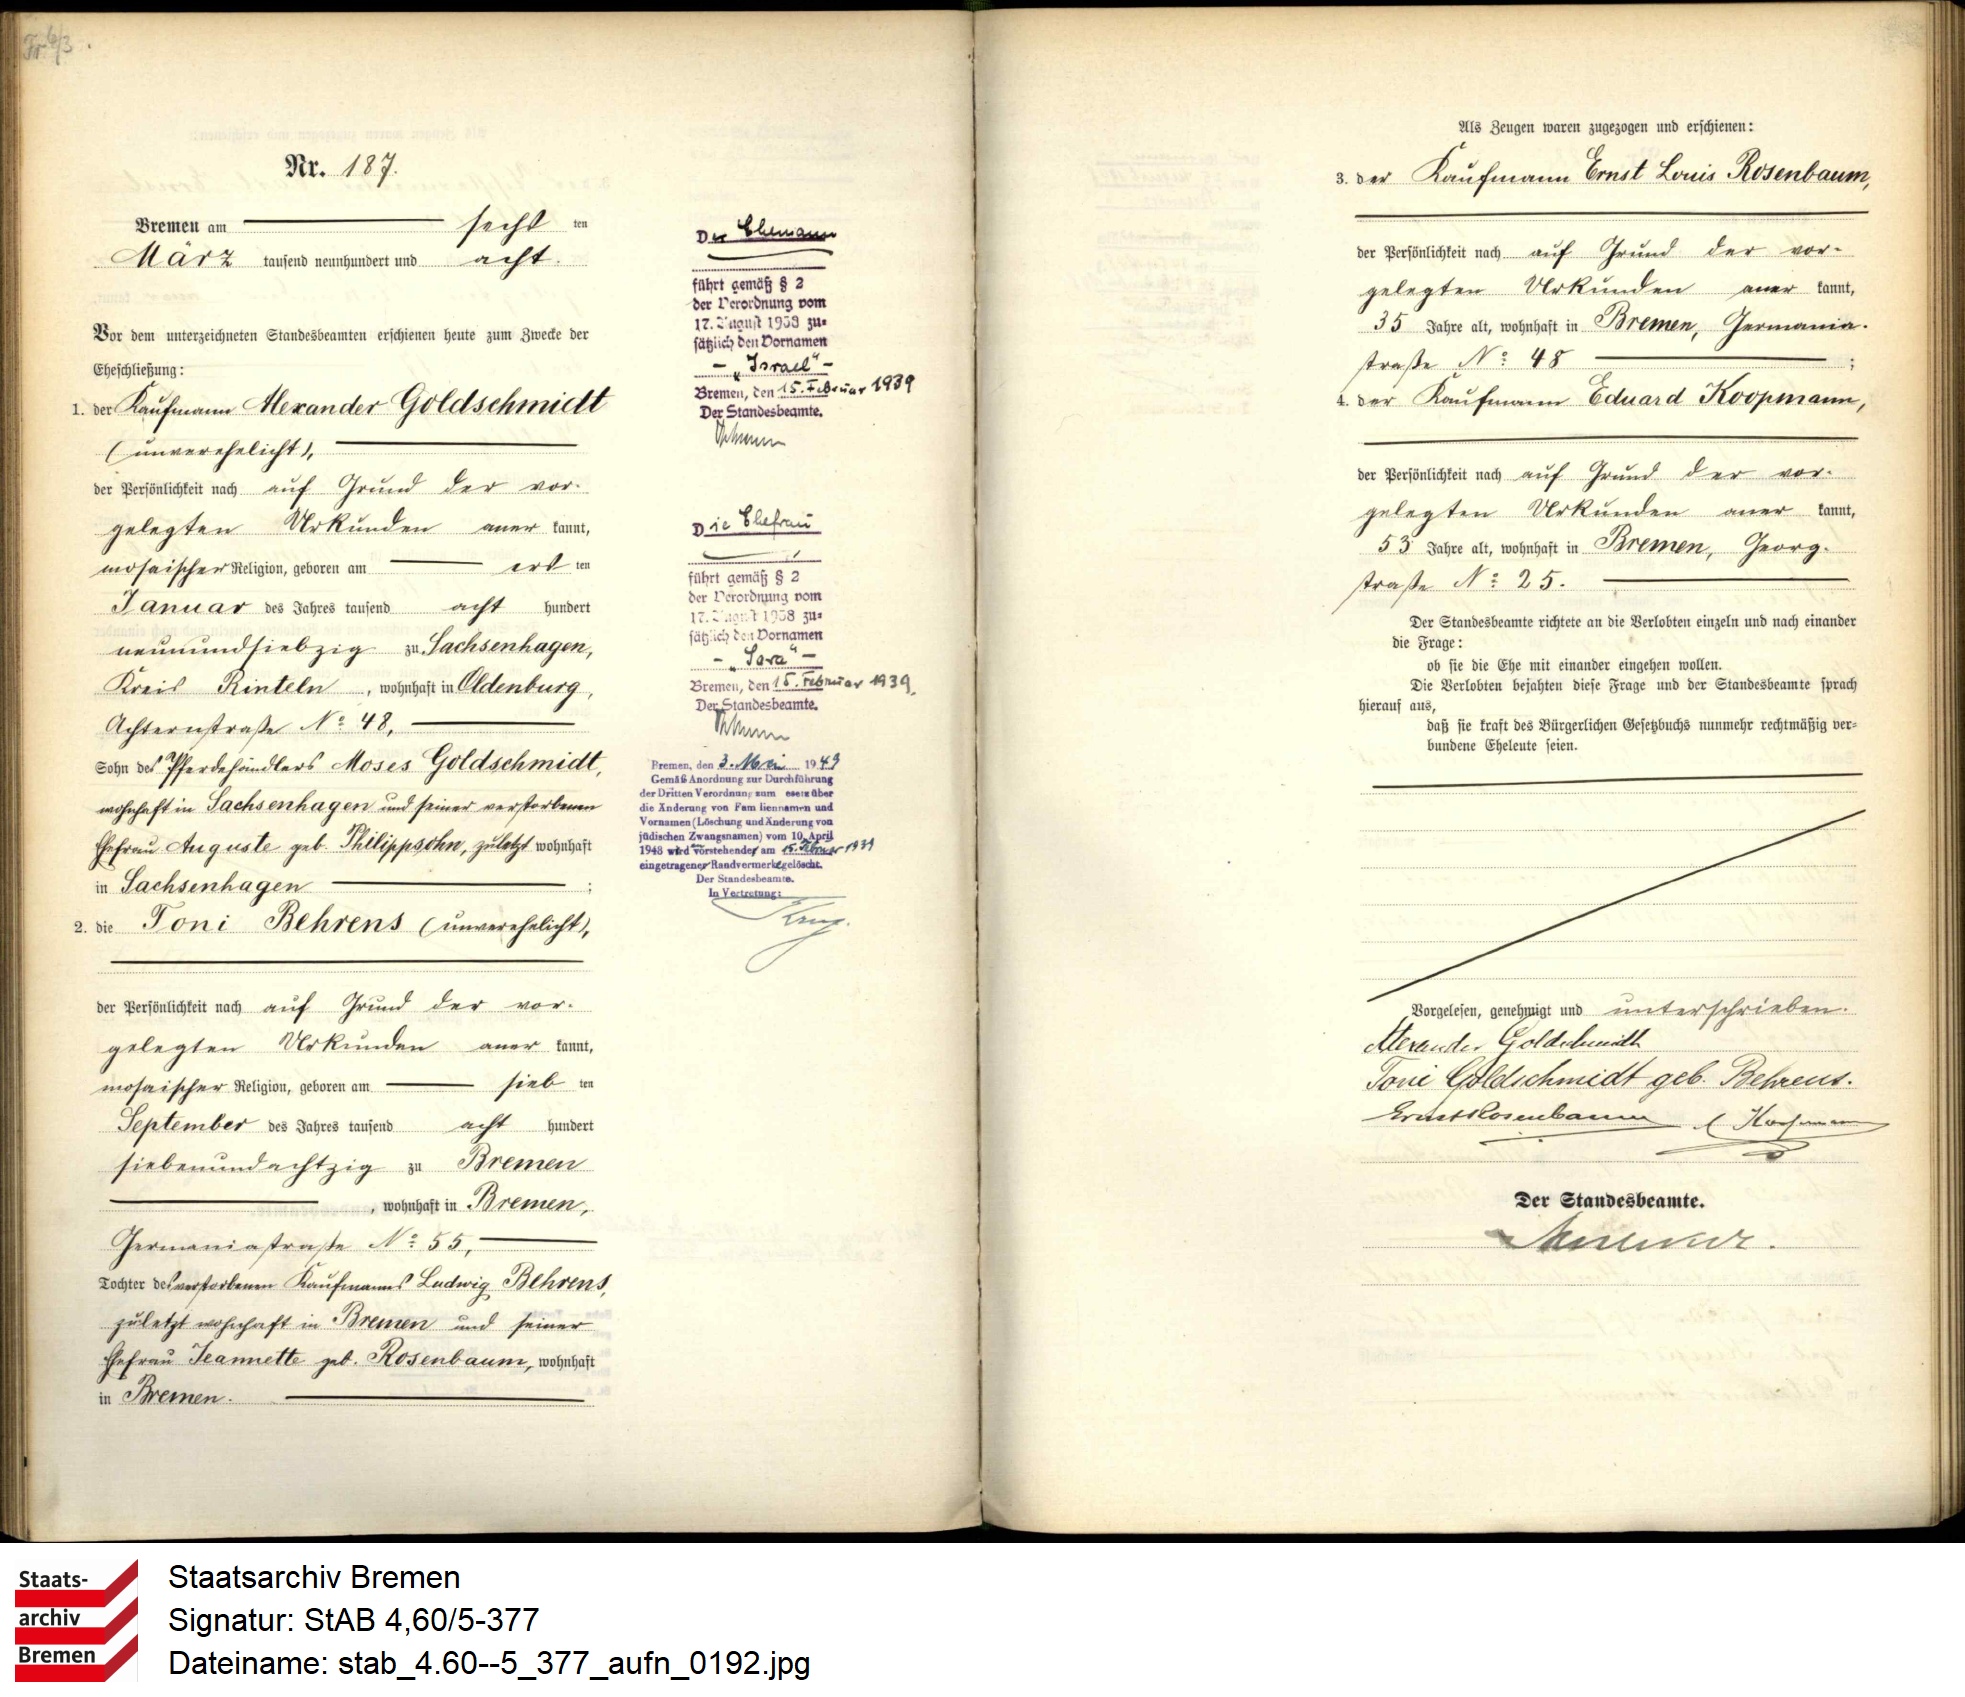 Nr. 187.
Bremen am sechsten
März tausend neunhundert und acht.
Vor dem unterzeichneten Standesbeamten erschienen heute zum Zwecke der
Eheschließung:
1. der Kaufmann Alexander Goldschmidt
(unverehelicht),
der Persönlichkeit nach auf Grund der vor-
gelegten Urkunden anerkannt,
mosaischer Religion, geboren am ersten
Januar des Jahres tausend acht hundert
neunundsiebzig zu Sachsenhagen,
Kreis Rinteln, wohnhaft in Oldenburg,
Achternstraße No 48,
Sohn des Pferdehändlers Moses Goldschmidt,
wohnhaft in Sachsenhagen und seiner verstorbenen
Ehefrau Auguste geb. Philippsohn, zuletzt wohnhaft
in Sachsenhagen ;
2. die Toni Behrens (unverehelicht),
der Persönlichkeit nach auf Grund der vor-
gelegten Urkunden anerkannt,
mosaischer Religion, geboren am siebten
September des Jahres tausend acht hundert
siebenundachtzig zu Bremen
, wohnhaft in Bremen,
Germaniastraße No 55,
Tochter des verstorbenen Kaufmanns Ludwig Behrens,
zuletzt wohnhaft in Bremen und seiner
Ehefrau Jeannette geb. Rosenbaum, wohnhaft
in Bremen.
Der Ehemann
führt gemäß § 2
der Verordnung vom
17. August 1938 zu-
sätzlich den Vornamen
- „Israel" -
Bremen, den 15. Februar 1939
Der Standesbeamte.
Die Ehefrau
führt gemäß § 2
der Verordnung vom
17. August 1938 zu-
sätzlich den Vornamen
- „Sara" -
Bremen, den 15. Februar 1939.
Der Standesbeamte.
Bremen, den 3. Mai 1949
Gemäß Anordnung zur Durchführung
der Dritten Verordnung zum esetz über
die Änderung von Fam liennamen und
Vornamen (Löschung und Änderung von
jüdischen Zwangsnamen) vom 10. April
1948 wird vorstehender am 15. Februar 1939
eingetragener Randvermerk gelöscht.
Der Standesbeamte.
In Vertretung:
Krug.
Als Zeugen waren zugezogen und erschienen:
3. der Kaufmann Ernst Louis Rosenbaum,
der Persönlichkeit nach auf Grund der vor-
gelegten Urkunden anerkannt,
35 Jahre alt, wohnhaft in Bremen, Germania-
straße No 48 ;
4. der Kaufmann Eduard Koopmann,
der Persönlichkeit nach auf Grund der vor-
gelegten Urkunden anerkannt,
53 Jahre alt, wohnhaft in Bremen, Georg-
straße No 25.
Der Standesbeamte richtete an die Verlobten einzeln und nach einander
die Frage:
ob sie die Ehe mit einander eingehen wollen.
Die Verlobten bejahten diese Frage und der Standesbeamte sprach
hierauf aus,
daß sie kraft des Bürgerlichen Gesetzbuchs nunmehr rechtmäßig ver-
bundene Eheleute seien.
Vorgelesen, genehmigt und unterschrieben.
Alexander Goldschmidt
Toni Goldschmidt geb. Behrens.
Ernst Rosenbaum E Koopmann
Der Standesbeamte.
Staats-
archiv
Bremen
Staatsarchiv Bremen
Signatur: StAB 4,60/5-377
Dateiname: stab_4.60--5_377_aufn_0192.jpg